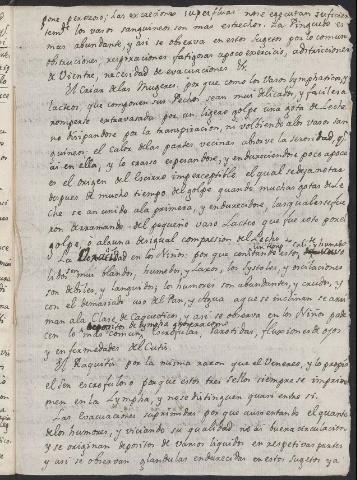 pone perezoso; Las excreciones superfluas no se executan suficien
temte los vasos sanguineos son mas estrechos. La Pinguedo es
mas abundante, y asi se observa en estos sugetos por lo comun
obstrucciones, respiraciones fatigosas a poco exercicio,
de Vientre, necesidad de evacuaciones &c
El Caida de las Mugeres, por que como los Vasos Lymphaticos, y
Lacteos, que componen sus Pechos sean muy delicados, y facil era
romperse extravasada por un ligero golpe una gota de Leche
no disipandose por la transpiracion, ni volbiendo a los vasos san
guineos: el calor de las partes vecinas absorve la serosidad, q.e
ai en ella, y lo craso esperandose, y endureciendose poco a poco
es el origen del Escirro imperceptible el qual se deja notar
despues de mucho tiempo del golpe quando muchas gotas de Le
che se an unido a la primera, y endurecidose, las quales se fue
ron derramando del pequeño vaso Lacteo que fue roto por el
golpe, o alguna desigual compresion del Lecho
en los Niños por que constando estos
lidos mui blandos, humedos, y laxos, los systoles, y oscilaciones
son debiles, y languidos, los humores son abundantes, y crudos, y
con el demasiado uso del Pan, y Papa a que se inclinan se axri
man a la Clase de Caquecticos, y asi se observa en los Niños pade
deposito de lympha
cen lo mas comun, Escrofulas, Parotidas, fluxiones de ojos
y enfermedades del Cutis.
El Raquitis por la misma razon que el Venereo, y lo propio
el Sen escrofuloso porque estos tres sellos siempre se imprimen
men en la Lympha, y no se distinguen quasi entre si.
Las evacuaciones suprimidas por que aumentando el quanto
de los humores, y viciando su qualidad no ai buena circulacion
y se originan depositos de varios liquidos en respetivas partes
y asi se observan glandulas endurecidas en estos sugetos ya